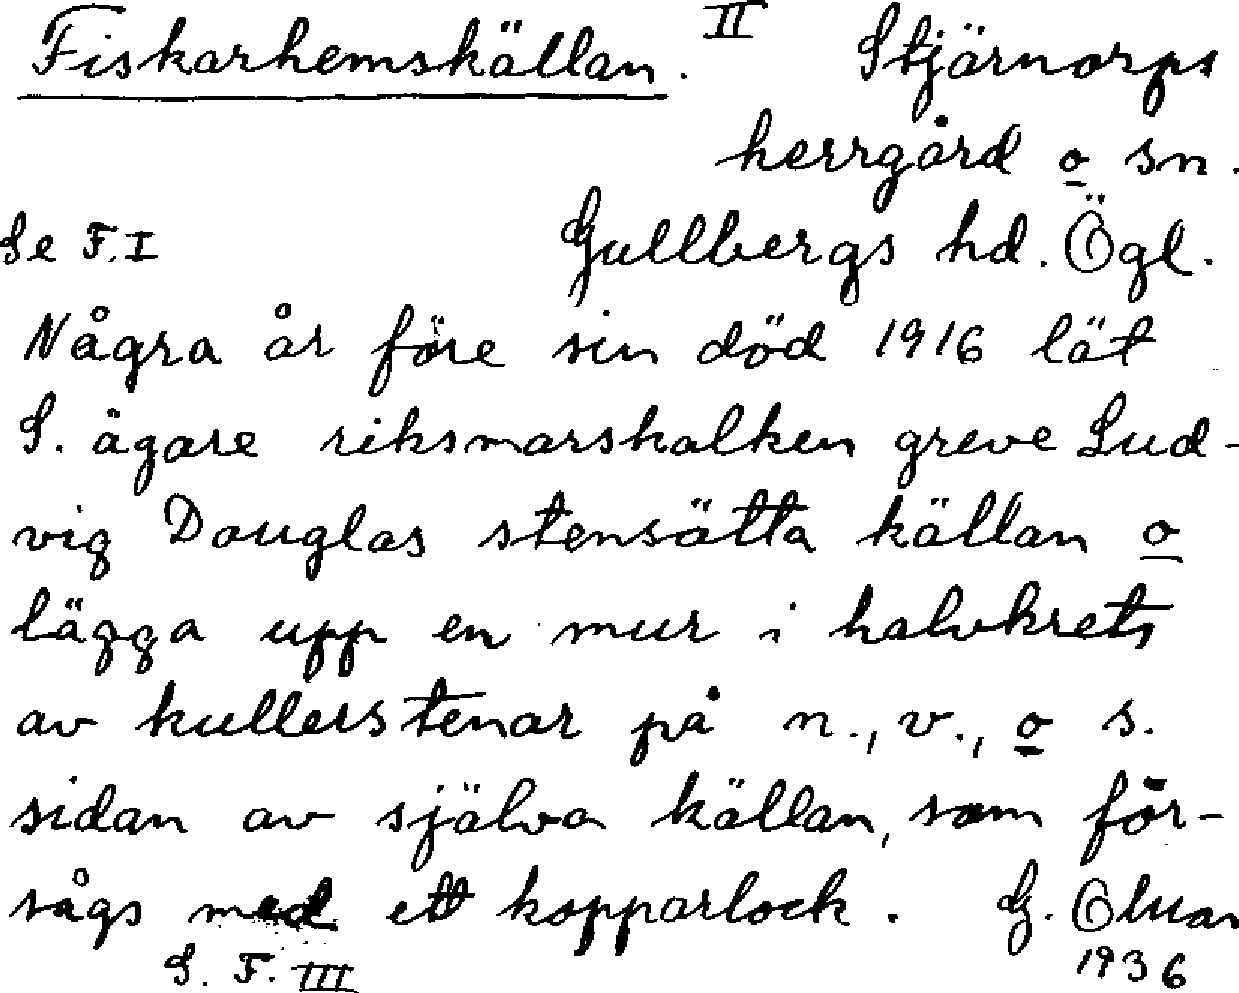 Fiskarhemskällan. II Stjärnorps
herrgård o sn.
Se F. I Gullbergs hd. Ögl.
Några år före sin död 1916 lät
S. ägare riksmarskalken greve Lud-
vig Douglas stensätta källan o
lägga upp en mur i halvkrets
av kullerstenar på n., v., o s.
sidan av själva källan, som för-
sågs med ett kopparlock. G.
S. F. III 1936